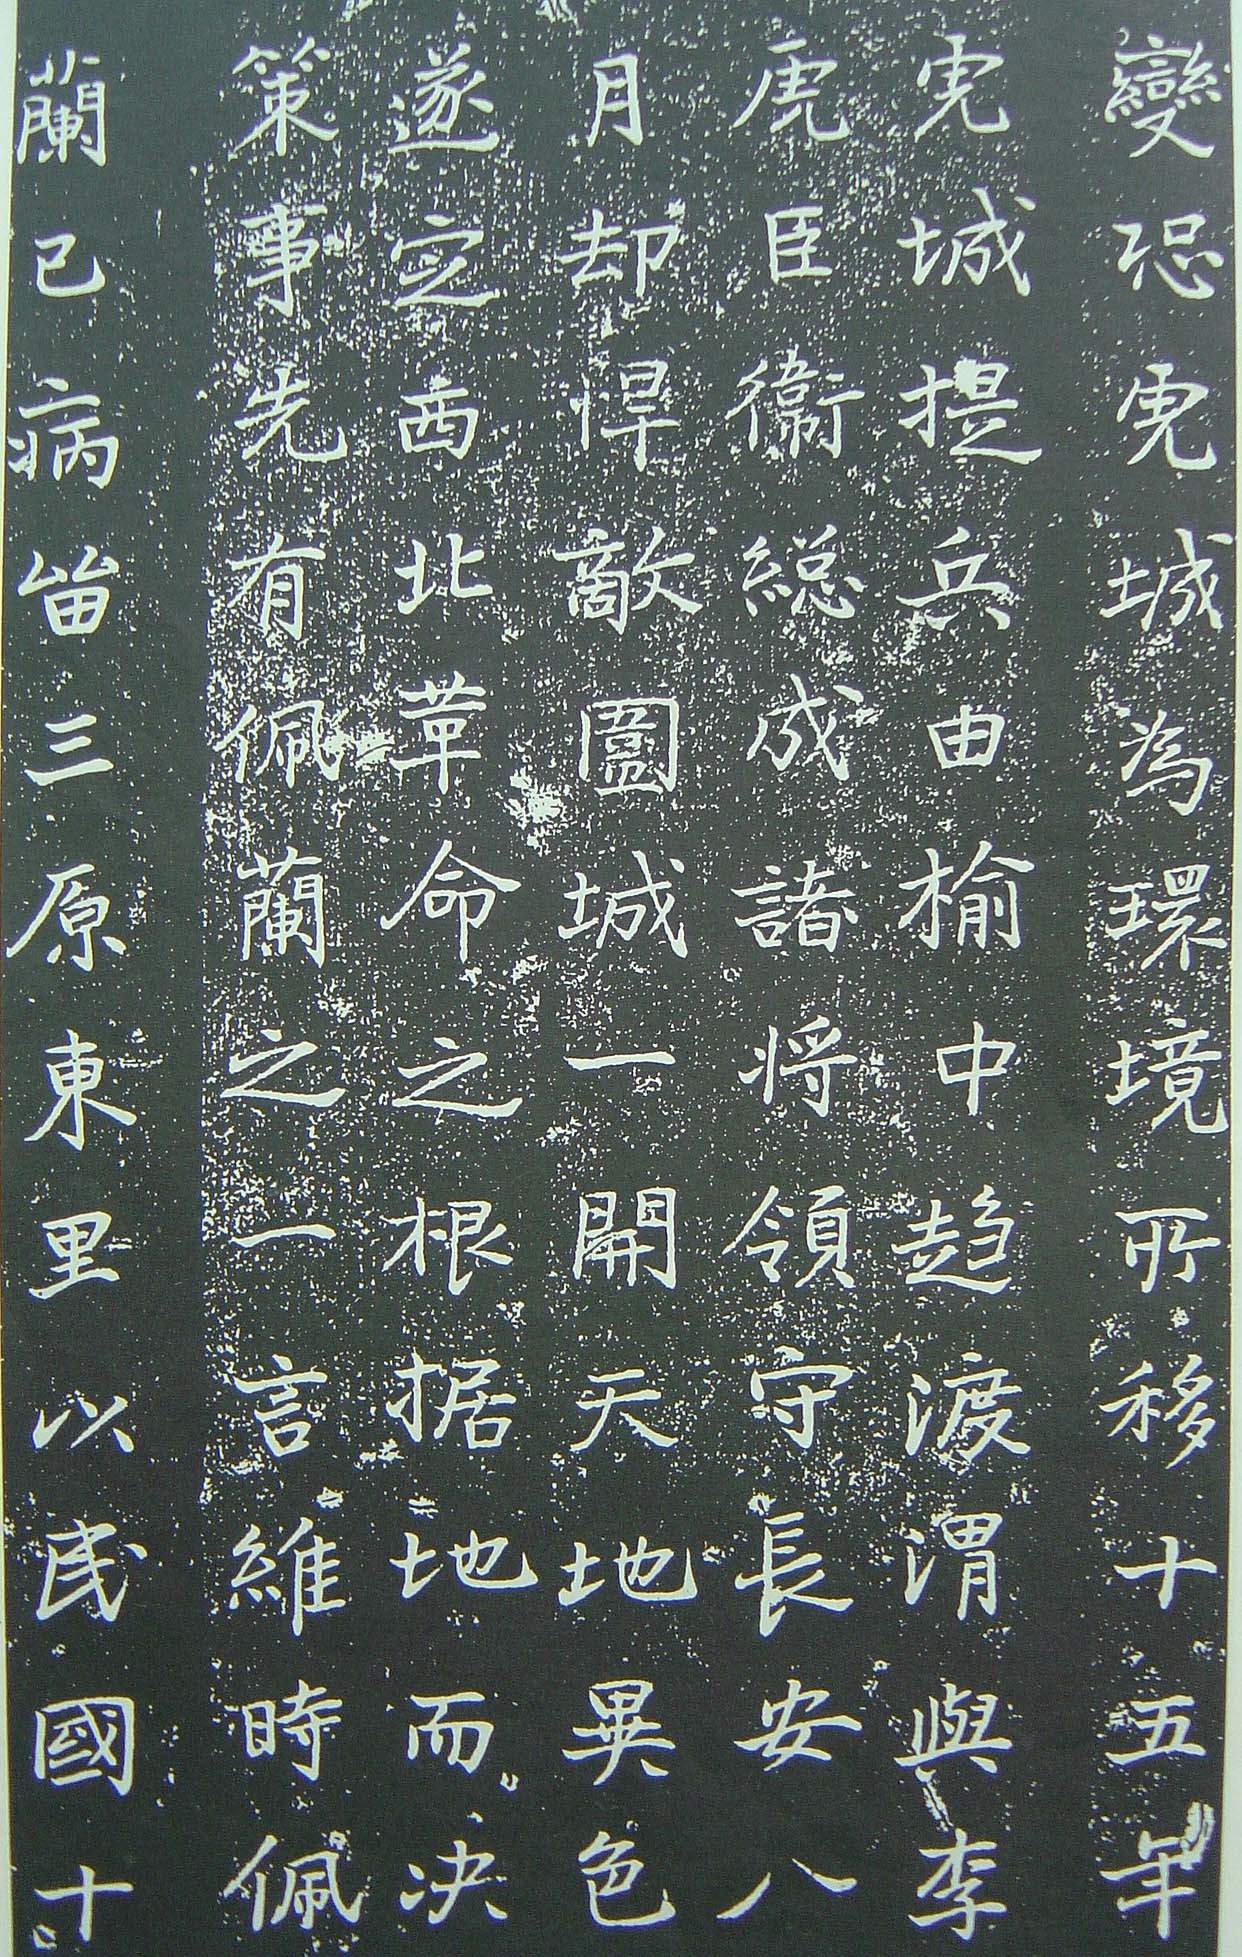 變恐虎城為環境所移十五年
虎城提兵由榆中趍渡渭與李
虎臣衛総成諸将領守長安八
月却悍敵圍城一開天地異色
遂定西北革命之根据地而决
策事先有佩蘭之一言維時佩
蘭已病留三原東里以民國十